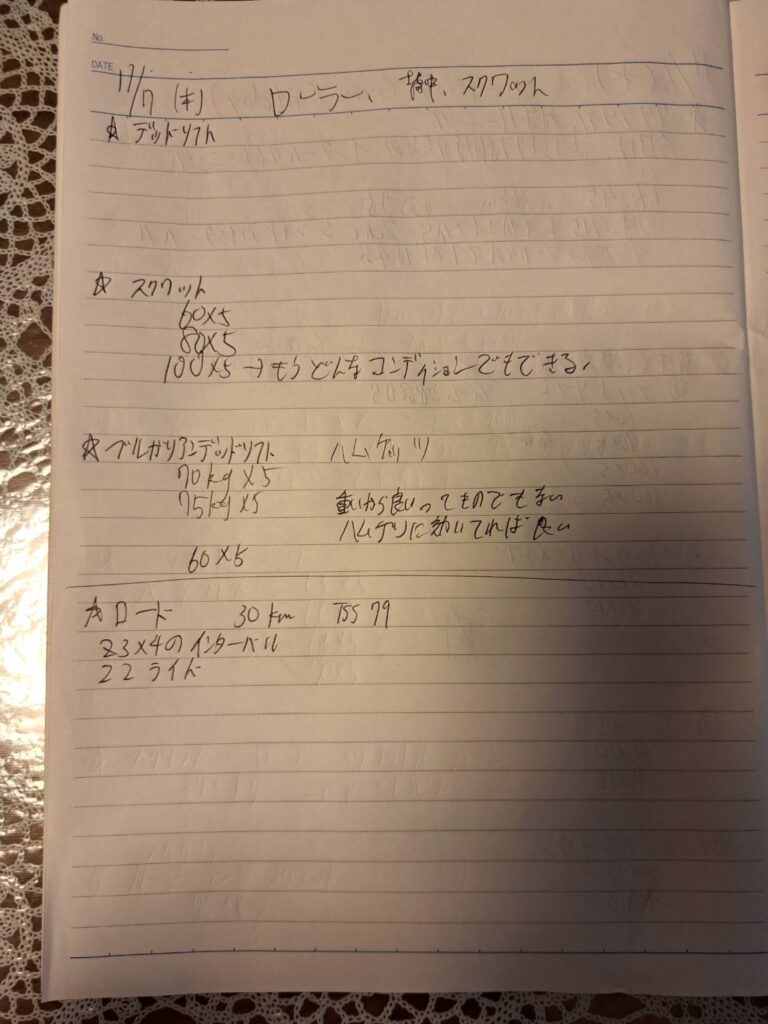 No.
DATE
11/17 (木) ローラー、背中、スクワット
☆ デッドリフト
☆ スクワット
60×5
80×5
100×5 → もうどんなコンディションでもできる、
☆ ブルガリアンデッドリフト ハムケツ
70kg×5
75kg×5 重いから良いってものでもない
ハムケツに効いてれば良い
60×5
☆ ロード 30km TSS 79
Z3×4のインターバル
Z2 ライド